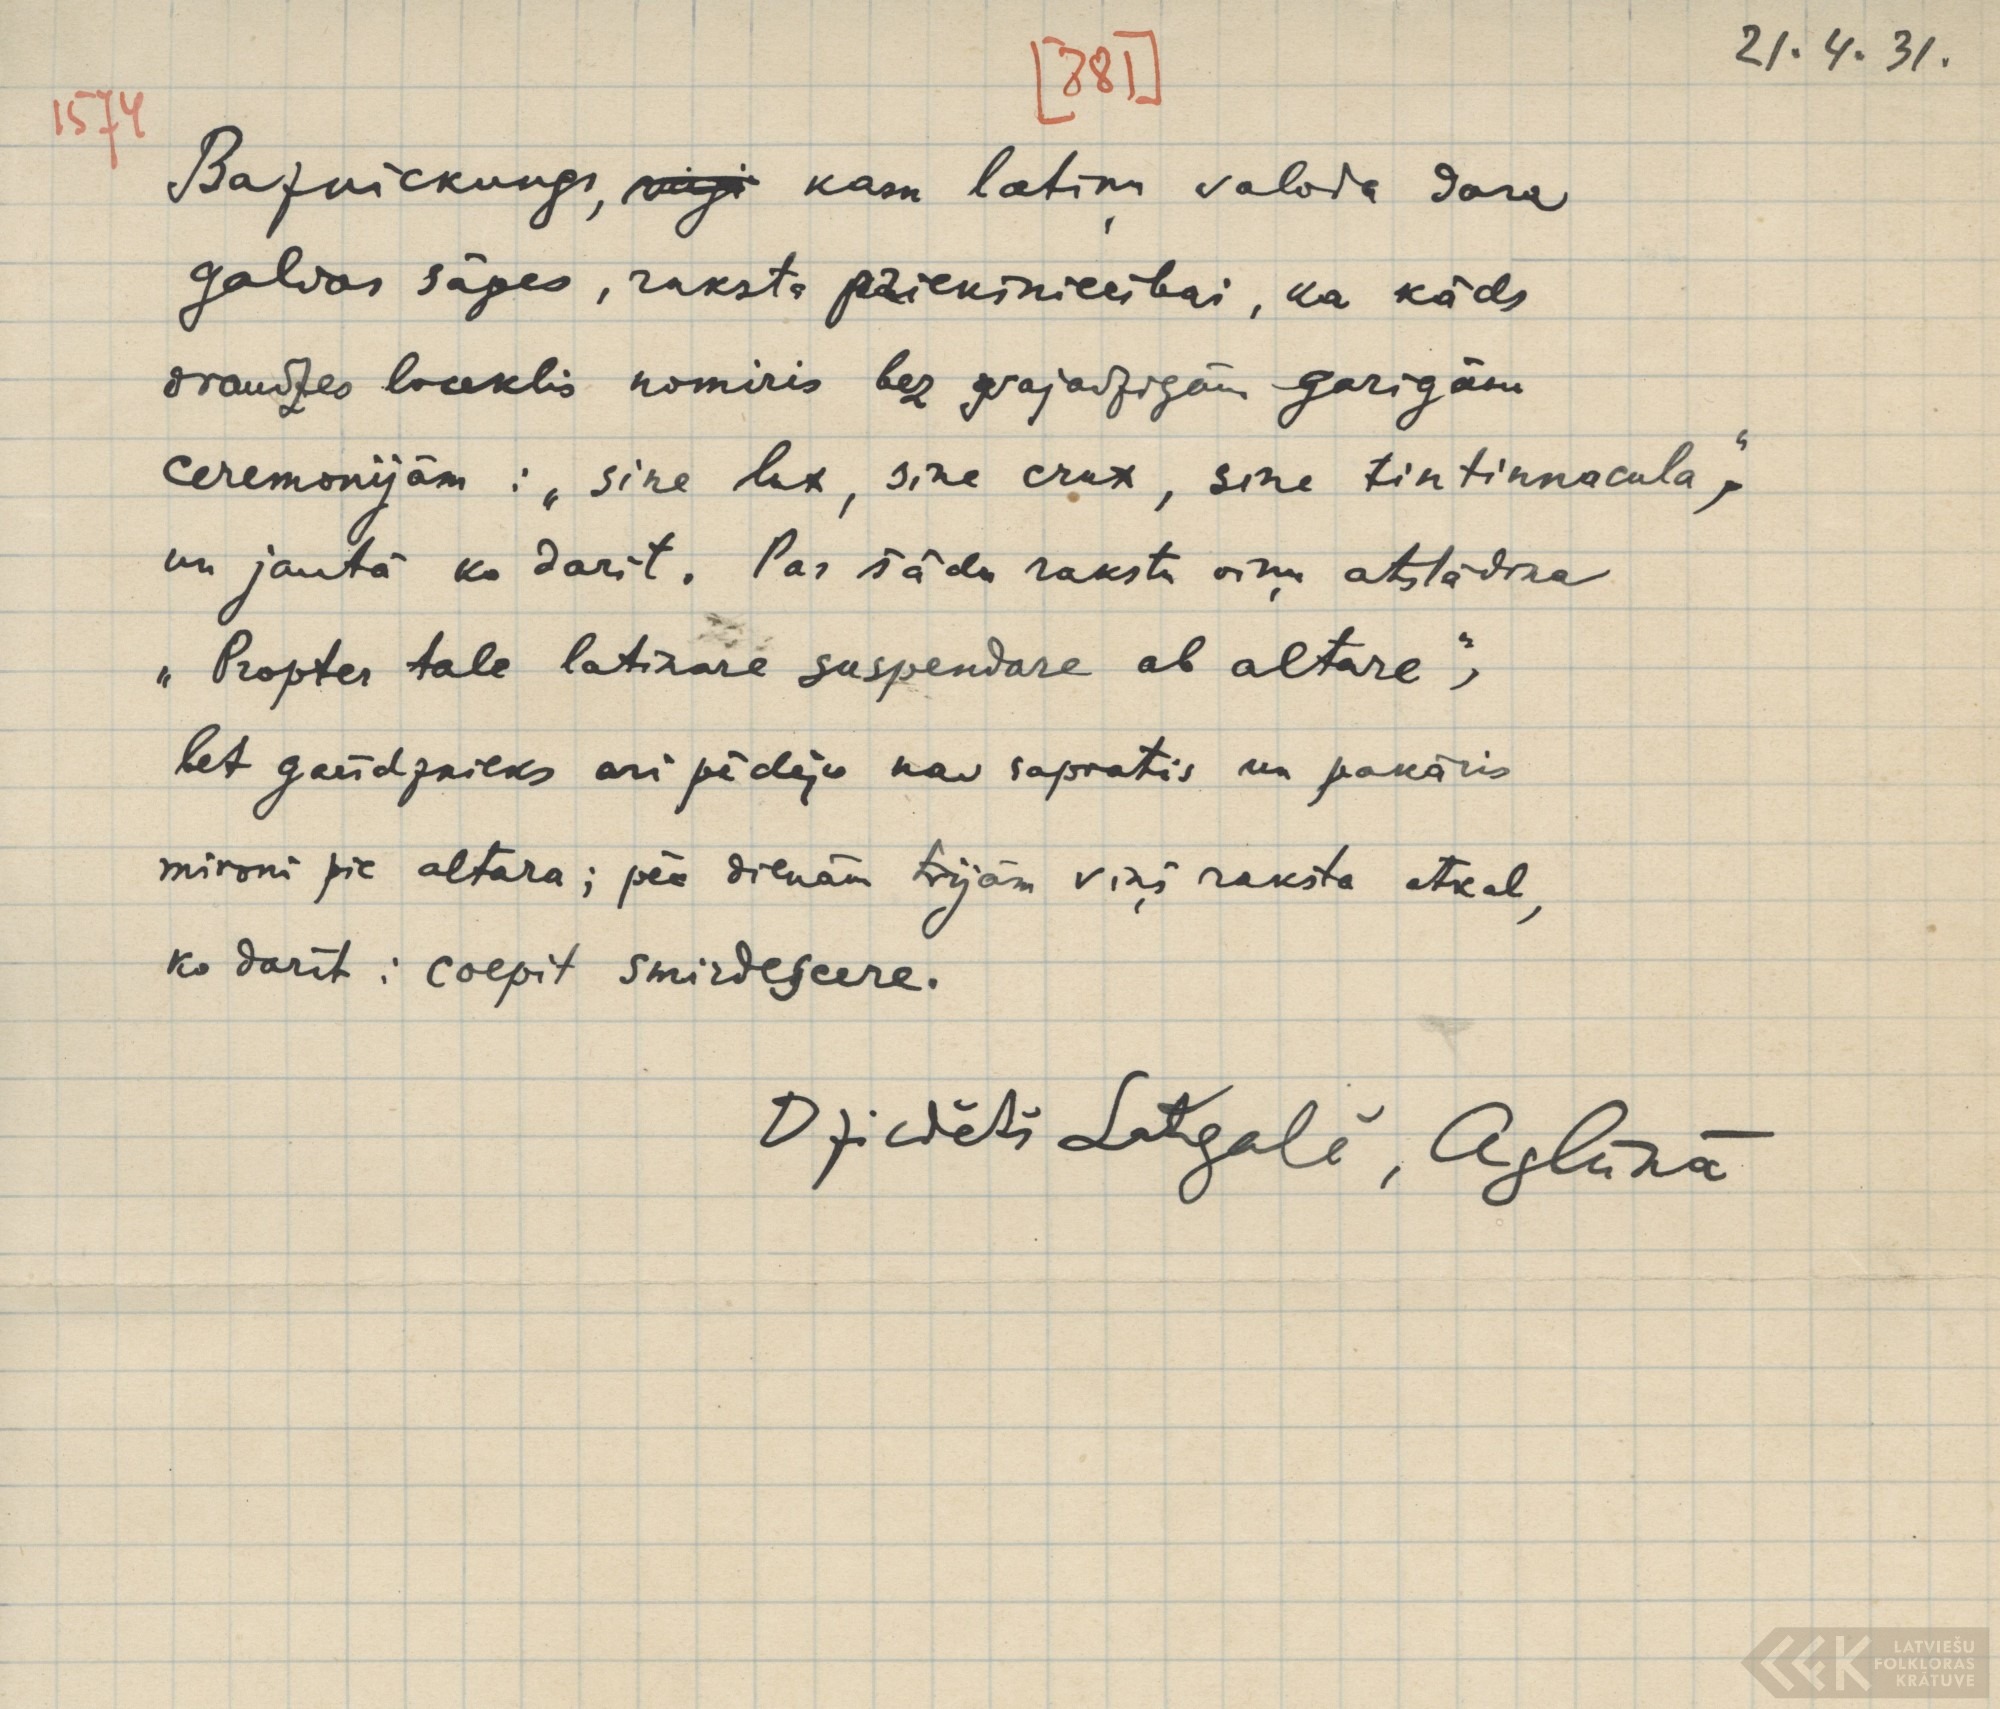 21. 4. 31.
[381]
1574
Baznickungs, kam latiņu valoda dara
galvas sāpes, raksta priekšniecibai, ka kāds
draudzes loceklis nomiris bez vajadzigām garigām
ceremonijām : „sine lux, sine crux, sine tintinnacula",
un jautā ko darīt. Par šādu rakstu viņu atstādina
„Propter tale latinare suspendare ab altare",
bet garīdznieks ari pēdējo nav sapratis un pakāris
mironi pie altara; pēc dienām trijām viņš raksta atkal,
ko darīt : coepit smirdescere.
Dzirdēts Latgalē, Aglūnā
LATVIEŠU
FOLKLORAS
KRĀTUVE